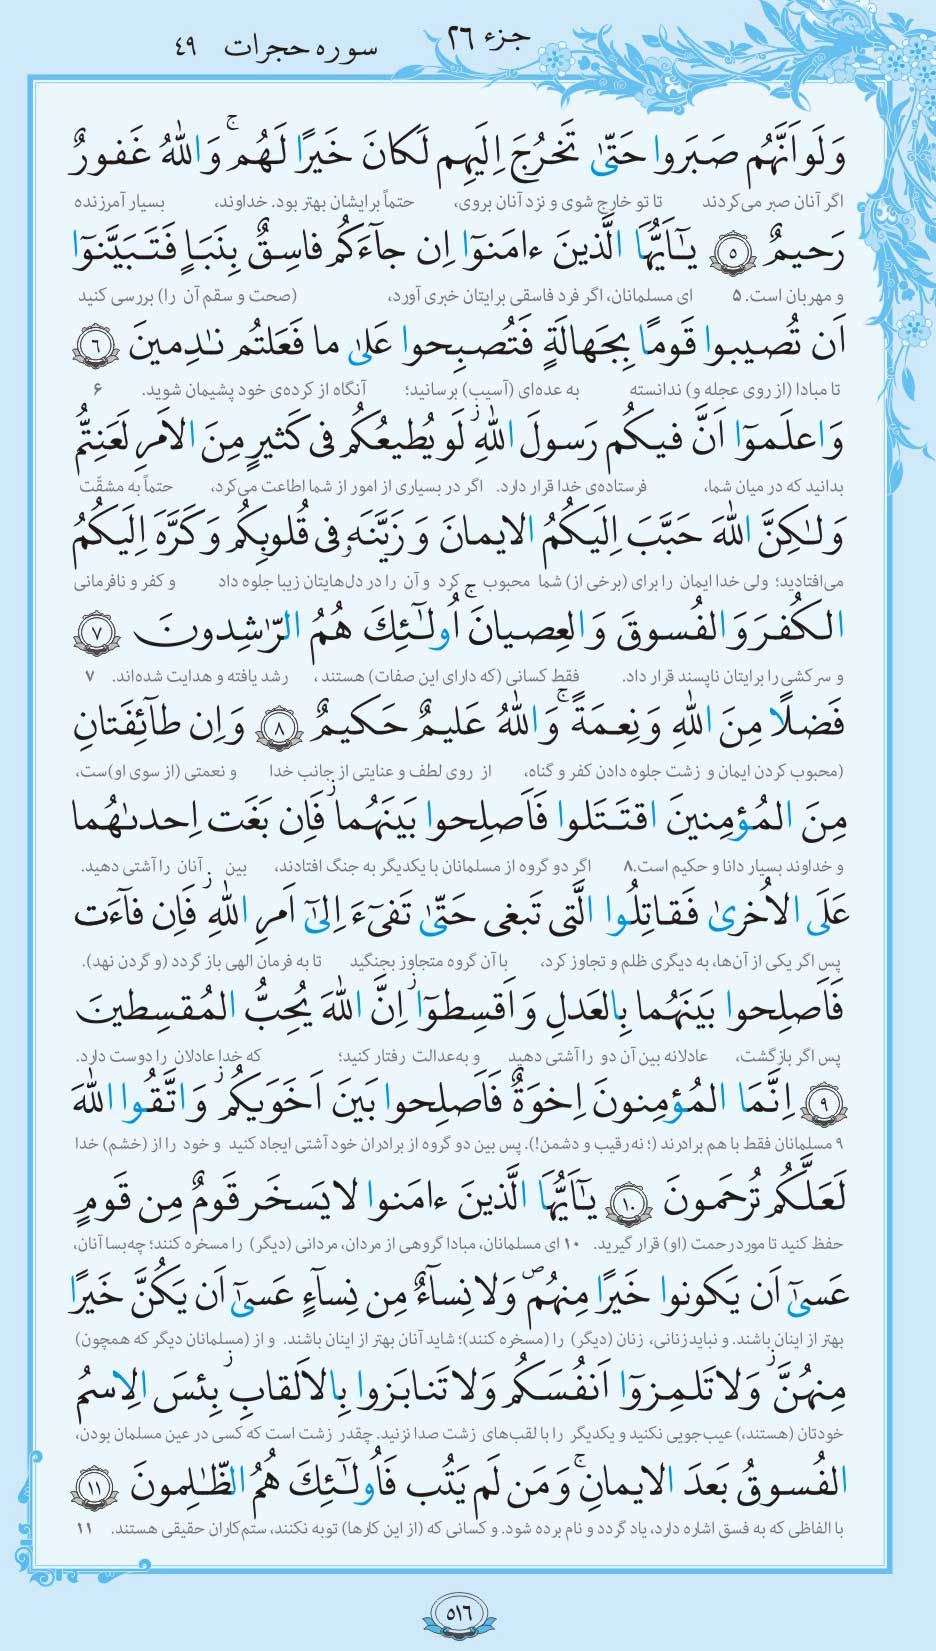 جزء ۲۶ سوره حجرات ۴۹
وَلَو اَنَّهُم صَبَروا حَتّىٰ تَخرُجَ اِلَيهِم لَكانَ خَيرًا لَهُم ۚ وَاللهُ غَفورٌ
اگر آنان صبر می‌کردند تا تو خارج شوی و نزد آنان بروی، حتماً برایشان بهتر بود. خداوند، بسیار آمرزنده
رَحيمٌ ﴿۵﴾ يـٰٓاَيُّهَا الَّذينَ ءامَنوٓا اِن جآءَكُم فاسِقٌ بِنَبَاٍ فَتَبَيَّنوٓا
و مهربان است. ۵ ای مسلمانان، اگر فرد فاسقی برایتان خبری آورد، (صحت و سقم آن را) بررسی کنید
اَن تُصيبوا قَومًا بِجَهالَةٍ فَتُصبِحوا عَلىٰ ما فَعَلتُم نـٰدِمينَ ﴿۶﴾
تا مبادا (از روی عجله و) ندانسته به عده‌ای (آسیب) برسانید؛ آنگاه از کرده‌ی خود پشیمان شوید. ۶
وَاعلَموٓا اَنَّ فيكُم رَسولَ اللهِ ۚ لَو يُطيعُكُم فى كَثيرٍ مِنَ الاَمرِ لَعَنِتُّم
بدانید که در میان شما، فرستاده‌ی خدا قرار دارد. اگر در بسیاری از امور از شما اطاعت می‌کرد، حتماً به مشقّت
وَلـٰكِنَّ اللهَ حَبَّبَ اِلَيكُمُ الايمانَ وَزَيَّنَهو فى قُلوبِكُم وَكَرَّهَ اِلَيكُمُ
می‌افتادید؛ ولی خدا ایمان را برای (برخی از) شما محبوب کرد و آن را در دل‌هایتان زیبا جلوه داد و کفر و نافرمانی
الكُفرَ وَالفُسوقَ وَالعِصيانَ ۚ اُولـٰٓئِكَ هُمُ الرّٰشِدونَ ﴿۷﴾
و سرکشی را برایتان ناپسند قرار داد. فقط کسانی (که دارای این صفات) هستند، رشد یافته و هدایت شده‌اند. ۷
فَضلًا مِنَ اللهِ وَنِعمَةً ۚ وَاللهُ عَليمٌ حَكيمٌ ﴿۸﴾ وَاِن طآئِفَتانِ
(محبوب کردن ایمان و زشت جلوه دادن کفر و گناه، از روی لطف و عنایتی از جانب خدا و نعمتی (از سوی او)ست،
مِنَ المُؤمِنينَ اقتَتَلوا فَاَصلِحوا بَينَهُما ۖ فَاِن بَغَت اِحدىٰهُما
و خداوند بسیار دانا و حکیم است.۸ اگر دو گروه از مسلمانان با یکدیگر به جنگ افتادند، بین آنان را آشتی دهید.
عَلَى الاُخرىٰ فَقاتِلُوا الَّتى تَبغى حَتّىٰ تَفىٓءَ اِلىٰٓ اَمرِ اللهِ ۚ فَاِن فآءَت
پس اگر یکی از آن‌ها، به دیگری ظلم و تجاوز کرد، با آن گروه متجاوز بجنگید تا به فرمان الهی باز گردد (و گردن نهد).
فَاَصلِحوا بَينَهُما بِالعَدلِ وَاَقسِطوٓا ۖ اِنَّ اللهَ يُحِبُّ المُقسِطينَ
پس اگر بازگشت، عادلانه بین آن دو را آشتی دهید و به‌عدالت رفتار کنید؛ که خدا عادلان را دوست دارد.
﴿۹﴾ اِنَّمَا المُؤمِنونَ اِخوَةٌ فَاَصلِحوا بَينَ اَخَوَيكُم ۚ وَاتَّقُوا اللهَ
۹ مسلمانان فقط با هم برادرند (؛ نه رقیب و دشمن!). پس بین دو گروه از برادران خود آشتی ایجاد کنید و خود را از (خشم) خدا
لَعَلَّكُم تُرحَمونَ ﴿۱۰﴾ يـٰٓاَيُّهَا الَّذينَ ءامَنوا لا يَسخَر قَومٌ مِن قَومٍ
حفظ کنید تا مورد رحمت (او) قرار گیرید. ۱۰ ای مسلمانان، مبادا گروهی از مردان، مردانی (دیگر) را مسخره کنند؛ چه‌بسا آنان،
عَسىٰٓ اَن يَكونوا خَيرًا مِنهُم ۖ وَلا نِسآءٌ مِن نِسآءٍ عَسىٰٓ اَن يَكُنَّ خَيرًا
بهتر از اینان باشند. و نباید زنانی، زنان (دیگر) را (مسخره کنند)؛ شاید آنان بهتر از اینان باشند. و از (مسلمانان دیگر که همچون)
مِنهُنَّ ۖ وَلا تَلمِزوٓا اَنفُسَكُم وَلا تَنابَزوا بِالاَلقابِ ۖ بِئسَ الِاسمُ
خودتان (هستند،) عیب‌جویی نکنید و یکدیگر را با لقب‌های زشت صدا نزنید. چقدر زشت است که کسی در عین مسلمان بودن،
الفُسوقُ بَعدَ الايمانِ ۚ وَمَن لَم يَتُب فَاُولـٰٓئِكَ هُمُ الظّـٰلِمونَ ﴿۱۱﴾
با الفاظی که به فسق اشاره دارد، یاد گردد و نام برده شود. و کسانی که (از این کارها) توبه نکنند، ستم‌کاران حقیقی هستند. ۱۱
۵۱۶